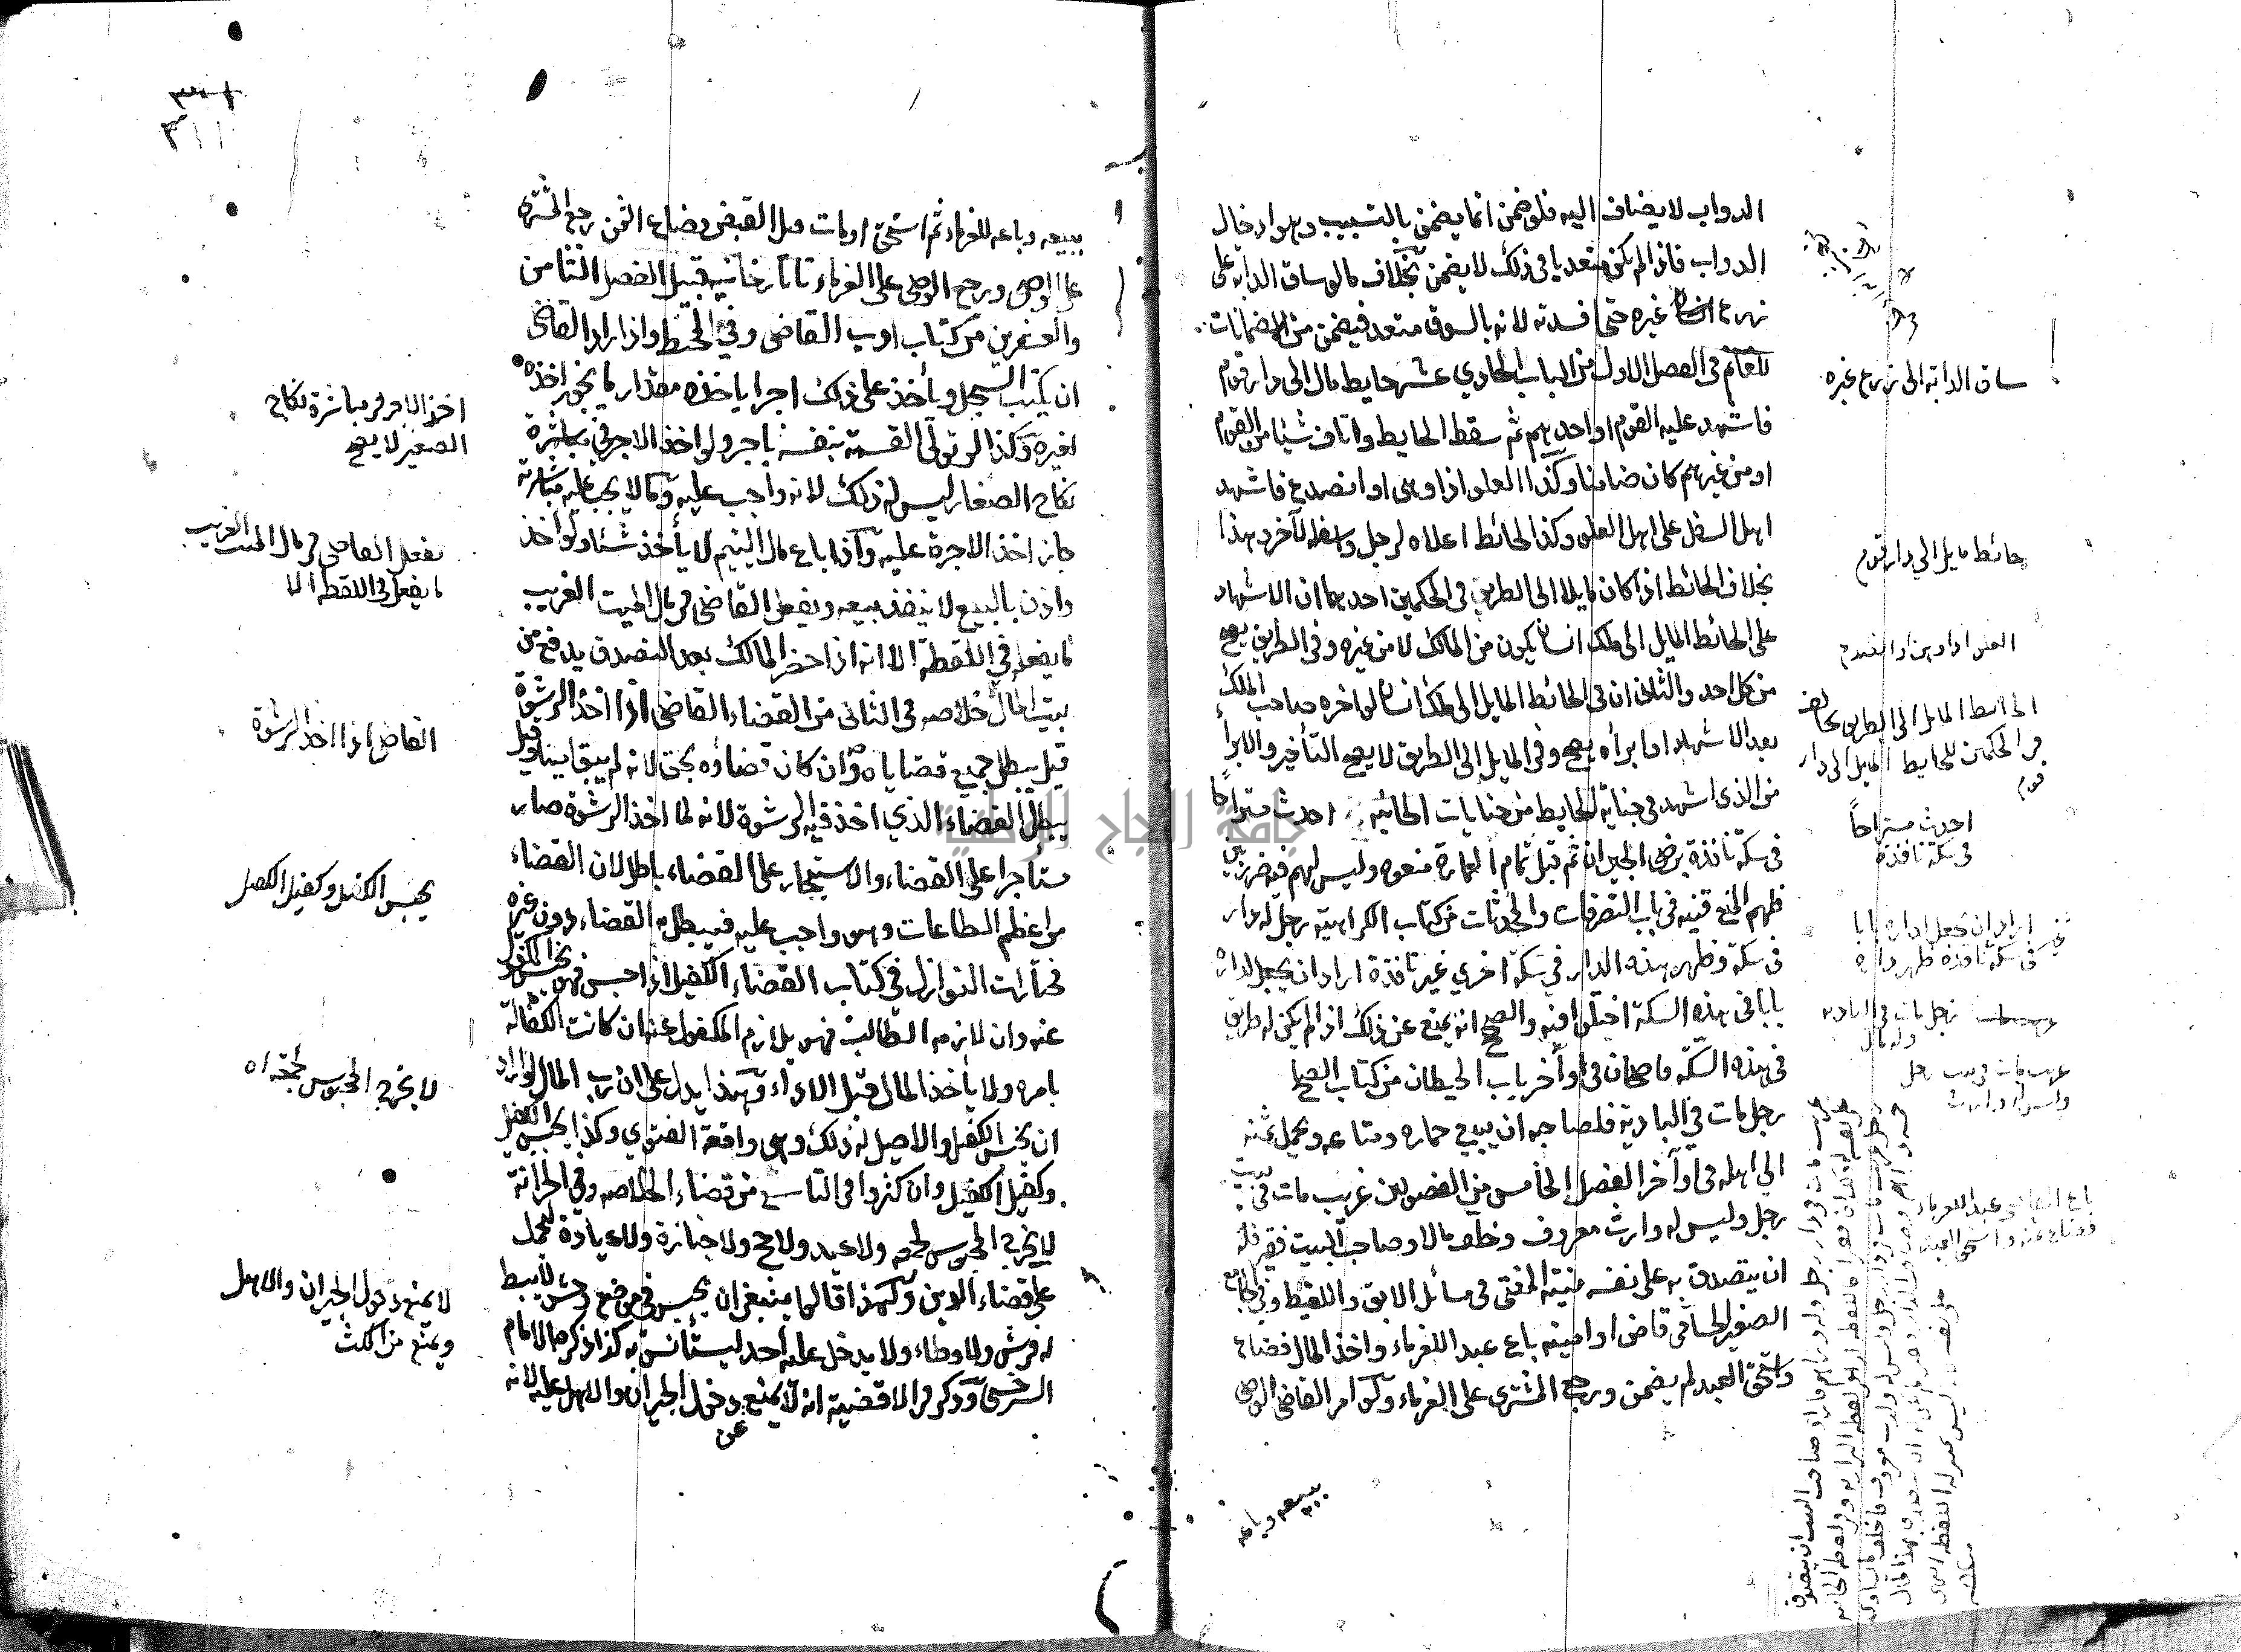 الدواب لا يضاف اليه فلو ضمن انما يضمن بالتسبيب وهو ادخال
الدواب فاذا لم يكن متعديا في ذلك لا يضمن بخلاف ما لو ساق الدابة على
زرع انسان غيره حتى افسدته لانه بالسوق متعد فيضمن من الضمانات
للغانم في الفصل الاول من الباب الحادي عشر حايط مال الى دار قوم
فاشهد عليه القوم او احدهم ثم سقط الحايط واتلف شيئا من القوم
او من غيرهم كان ضامنا وكذا العلو اذا وهى او انصدع فاشهد
اهل السفل على اهل العلو وكذا الحائط اعلاه لرجل واسفله لآخر وهذا
بخلاف الحائط اذا كان مايلا الى الطريق في الحكمين احدهما ان الاشهاد
على الحائط المايل الى ملك انسان يكون من المالك لا من غيره وفي الطريق يصح
من كل احد والثاني ان في الحائط المايل الى ملك انسان لو اخره صاحب الملك
بعد الاشهاد او ابرأه يصح وفي المايل الى الطريق لا يصح التأخير والابرأ
من الذي اشهد في جناية الحايط من جنايات الخانية احدث مستراحا
في سكة نافذة برضى الجيران ثم قبل تمام العمارة منعوه وليس لهم فيه ضرر بين
فلهم المنع قنيه في باب التصرفات والمحدثات من كتاب الكراهية رجل له دار
في سكة وظهر هذه الدار في سكة اخرى غير نافذة اراد ان يجعل لداره
بابا في هذه السكة اختلفوا فيه والصحيح انه يمنع عن ذلك اذا لم يكن له طريق
في هذه السكة قاضيخان في اوآخر باب الحيطان من كتاب الصلح
رجل مات في البادية فلصاحبه ان يبيع حماره ومتاعه ويحمل ثمنه
الى اهله في اوآخر الفصل الخامس من الفصولين غريب مات في بيت
رجل وليس له وارث معروف وخلف مالا وصاحب البيت فقير فله
ان يتصدق به على نفسه منية المفتي في مسائل الابق واللقيط وفي الجامع
الصغير الحسامي قاض او امينه باع عبدا للغرماء واخذ المال فضاع
واستحق العبد لم يضمن ورجع المشتري على الغرماء ولو امر القاضي الوصي
ببيعه وباعه
ساق الدابة الى زرع غيره
حائط مايل الى دار قوم
العلو اذا وهى وانصدع
الحائط المايل الى الطريق يخالف
في الحكمين للحايط المايل الى دار
قوم
احدث مستراحاً
في سكة نافذة
اراد ان يجعل لداره بابا
في سكة نافذة ظهر داره
رجل مات في البادية
وله مال
غريب مات في بيت رجل
وليس له وارث
باع القاضي عبدا للغرماء
فضاع ثمنه واستحق العبد
ببيعه وباعه للغرماء ثم استحق او مات قبل القبض وضاع الثمن رجع المشتري
على الوصي ورجع الوصي على الغرماء تاتارخانيه قبيل الفصل الثامن
والعشرين من كتاب ادب القاضي وفي المحيط واذا اراد القاضي
ان يكتب السجل ويأخذ على ذلك اجرا ياخذه مقدار ما يجوز اخذه
لغيره وكذا لو تولى القسمة بنفسه باجر ولو اخذ الاجر في مباشرة
نكاح الصغار ليس له ذلك لانه واجب عليه وما لا يجب عليه مباشرته
جاز اخذ الاجرة عليه وآذا باع مال اليتيم لا يأخذ شئا ولو اخذ
واذن بالبيع لا ينفذ بيعه ويفعل القاضي في مال الميت الغريب
ما يفعل في اللقطة الا انه اذا حضر المالك بعد التصدق يدفع من
بيت المال خلاصه في الثاني من القضاء القاضي اذا اخذ الرشوة
قيل يبطل جميع قضاياه وان كان قضاؤه بحق لانه لم يبق امينا وقيل
يبطل القضاء الذي اخذ فيه الرشوة لانه لما اخذ الرشوة صار
مستأجرا على القضاء والاستيجار على القضاء باطل لان القضاء
من اعظم الطاعات وهو واجب عليه فيبطل به القضاء دون غيره
مختارات النوازل في كتاب القضاء الكفيل اذا حبس فهو يحبس المكفول
عنه وان لازمه الطالب فهو يلازم المكفول عنه ان كانت الكفالة
بامره ولا يأخذ المال قبل الاداء وهذا يدل على ان رب المال لو اراد
ان يحبس الكفيل والاصيل له ذلك وهي واقعة الفتوى وكذا يحبس الكفيل
وكفيل الكفيل وان كثروا في التاسع من قضاء الخلاصه وفي الخزانة
لا يخرج المحبوس لجمعة ولا عيد ولا حج ولا جنازة ولا عيادة ليعجل
على قضاء الدين ولهذا قالوا ينبغي ان يحبس في موضع وحش لا يبسط
له فرش ولا وطاء ولا يدخل عليه أحد ليستأنس به كذا ذكره الامام
السرخسي وذكر في الاقضية انه لا يمنع دخول الجيران والاهل عليه لانه
عن
٣١١
اخذ الاجر في مباشرة نكاح
الصغير لا يصح
يفعل القاضي في مال الميت الغريب
ما يفعل في اللقطه الا
القاضي اذا اخذ الرشوة
يحبس الكفيل وكفيل الكفيل
لا يخرج المحبوس لجمعه
لا يمنع دخول الجيران والاهل
ويمنع من المكث
جامعة النجاح الوطنية